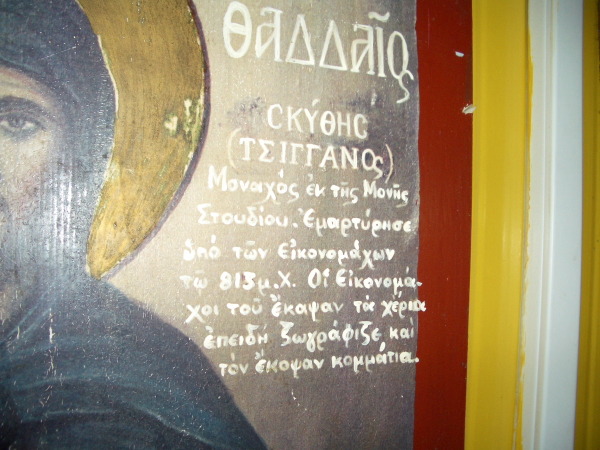 ΘΑΔΔΑῖΟς
ΣΚΎΘΗΣ
(ΤΣΙΓΓΑΝΟς)
Μοναχός ἐκ τῆς Μονῆς
Στουδίου. Ἐμαρτύρησε
ὑπό τῶν Εἰκονομάχων
τῶ 813 μ.Χ. Οἱ Εἰκονομά-
χοι τοῦ ἔκαψαν τὰ χέρια
ἐπειδή ζωγράφιζε καί
τόν ἔκοψαν κομμάτια.